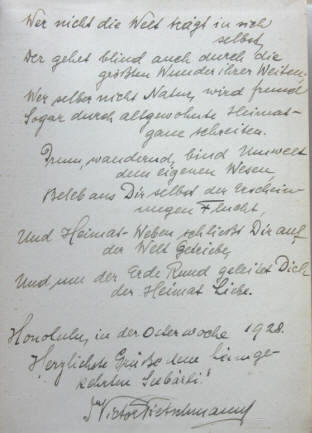 Wer nicht die Welt trägt in sich
selbst,
Der gehet blind auch durch die
größten Wunder ihrer Weiten.
Wer selber nicht Natur, wird fremd
Sogar durch altgewohnte Heimat-
gaue schreiten.
Drum, wandernd, bind Umwelt
dem eigenen Wesen,
Beleb aus Dir selbst der Erschein-
ungen Flucht,
Und Heimat-Weben schließt Dir auf
der Welt Getriebe,
Und um der Erde Rund geleitet Dich
der Heimat Liebe.
Honolulu, in der Osterwoche 1928.
Herzlichste Grüße dem
Dr Victor Pietschmann